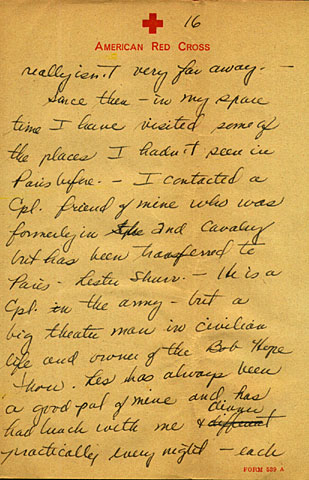 16
AMERICAN RED CROSS
really isn't very far away. —
Since then – in my spare
time I have visited some of
the places I hadn't seen in
Paris before. – I contacted a
Cpl. friend of mine who was
formerly in the 2nd Cavalry
but has been transferred to
Paris - Lester Shurr. – He is a
Cpl. in the army – but a
big theatre man in civilian
life and owner of the Bob Hope
Show. Les has always been
a good pal of mine and has
had lunch with me & dinner
practically every night – each
FORM 539 A